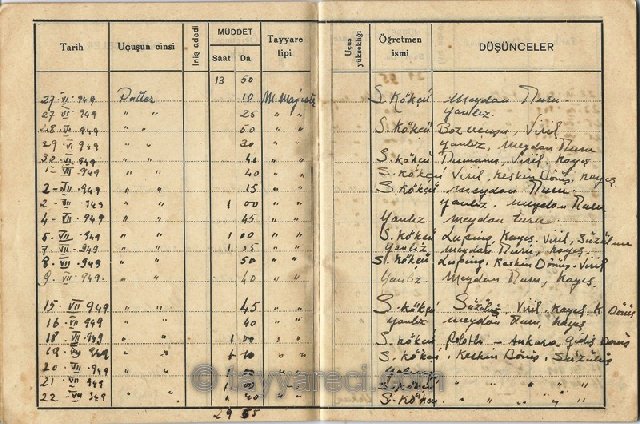 Tarih Uçuşun cinsi İniş adedi MÜDDET Saat Da. Tayyare tipi Uçuş yüksekliği Öğretmen ismi DÜŞÜNCELER
13 50
27 · VI · 949 10 S. Kökçü Meydan Turu
27 · VI · 949 " " 25 " " Yanlız
28 · VI · 949 " " 50 " " S. Kökçü Viril
29 · VI · 949 " " 30 " " Yanlız, Meydan Turu
" " 40 " " S. Kökçü Viril, Kayış
" " 40 " " S. Kökçü Viril, Keskin Dönüş, Kayış
2 · VII · 949 " " 15 " " S. Kökçü Meydan Turu
2 · VII · 949 " " 1 00 " " Yanlız, Meydan Turu
4 · VII · 949 " " 45 " " Yanlız Meydan turu
5 · VII · 949 " " 1 00 " " S. Kökçü Luping, Kayış, Viril, Süzülme
7 · VII · 949 " " 1 " " Yanlız Meydan Turu, Kayış
8 · VII · 949 " " 50 " " S. Kökçü Luping, Keskin Dönüş, Viril
9 · VII · 949 " " 40 " " Yanlız Meydan Turu, Kayış
15 · VII · 949 " " 45 " " S. Kökçü Viril, Kayış, K. Dönüş
16 · VII · 949 " " 40 " " Yanlız, Meydan Turu, Kayış
18 · VII · 949 " " 1 " " S. Kökçü Polatlı - Ankara Gidiş Dönüş
19 · VII · 949 " " 10 " " S. Kökçü Keskin Dönüş, Süzülüş
20 · VII · 949 " " " "
21 · VII · 949 " " " " S. Kökçü " " " "
22 · VII · 949 " " 40 " " S. Kökçü " " " "
29 55
© tayyareci.com